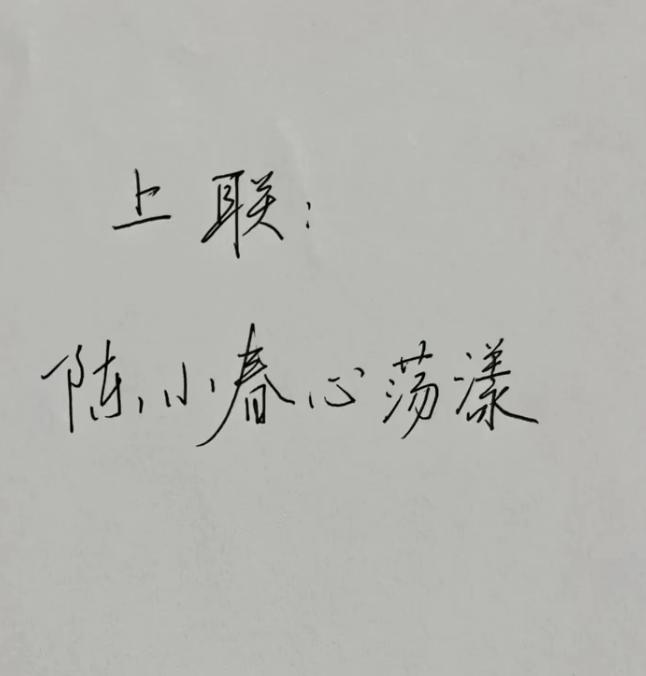 上联:
陈小春心荡漾